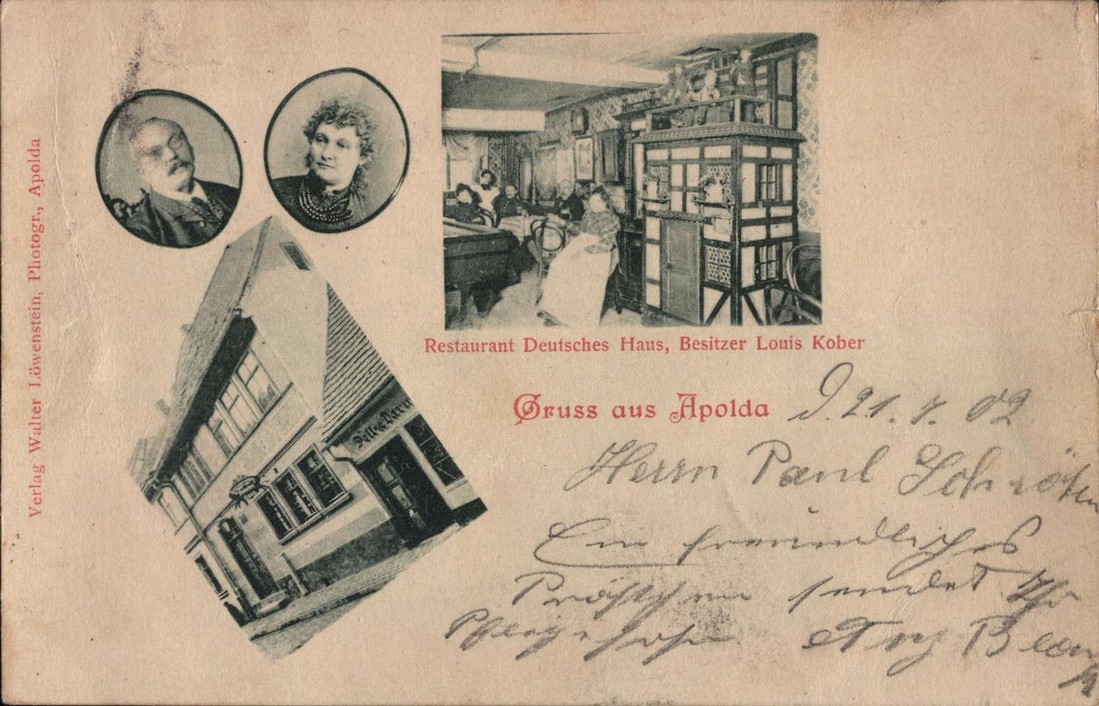 Verlag Walter Löwenstein, Photogr., Apolda
Restaurant Deutsches Haus, Besitzer Louis Kober
Gruss aus Apolda
D. 21. 7. 02
Herrn Paul Schröter
Ein freundliches
Pröstchen sendet Ihr